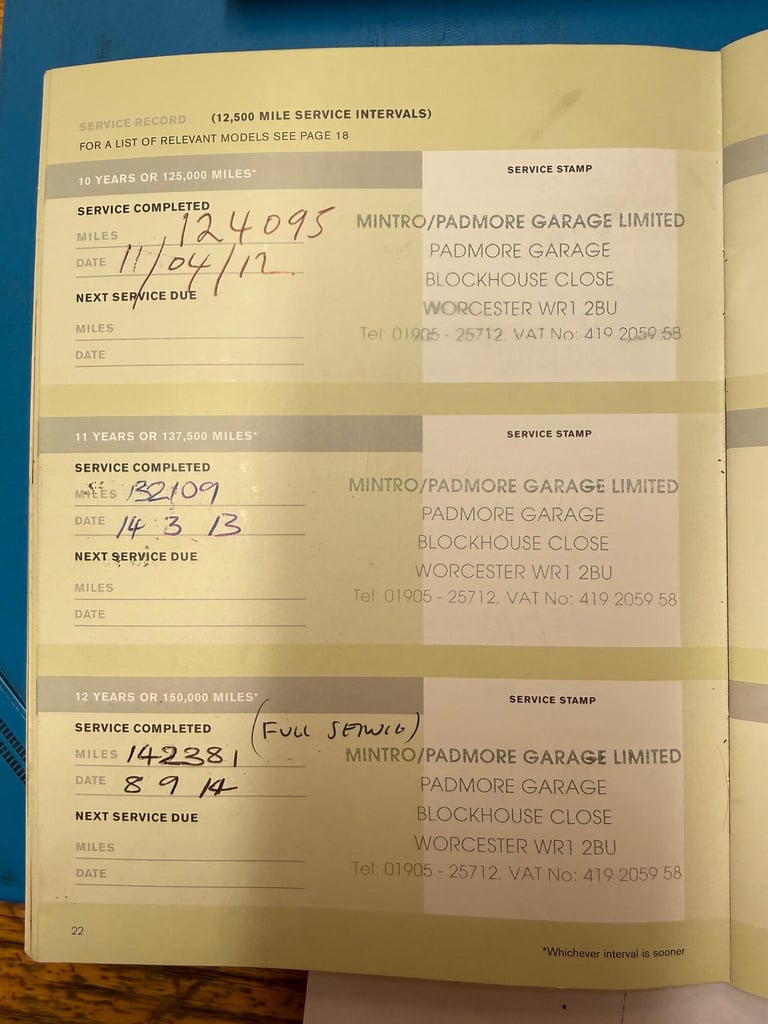 SERVICE RECORD (12,500 MILE SERVICE INTERVALS)
FOR A LIST OF RELEVANT MODELS SEE PAGE 18
10 YEARS OR 125,000 MILES*
SERVICE STAMP
SERVICE COMPLETED
MILES 124095
DATE 11/04/12
NEXT SERVICE DUE
MILES
DATE
MINTRO/PADMORE GARAGE LIMITED
PADMORE GARAGE
BLOCKHOUSE CLOSE
WORCESTER WR1 2BU
Tel: 01905 - 25712. VAT No: 419 2059 58
11 YEARS OR 137,500 MILES*
SERVICE STAMP
SERVICE COMPLETED
MILES 132109
DATE 14 3 13
NEXT SERVICE DUE
MILES
DATE
MINTRO/PADMORE GARAGE LIMITED
PADMORE GARAGE
BLOCKHOUSE CLOSE
WORCESTER WR1 2BU
Tel: 01905 - 25712. VAT No: 419 2059 58
12 YEARS OR 150,000 MILES*
SERVICE STAMP
SERVICE COMPLETED (FULL SERVICE)
MILES 142381
DATE 8 9 14
NEXT SERVICE DUE
MILES
DATE
MINTRO/PADMORE GARAGE LIMITED
PADMORE GARAGE
BLOCKHOUSE CLOSE
WORCESTER WR1 2BU
Tel: 01905 - 25712. VAT No: 419 2059 58
22
*Whichever interval is sooner